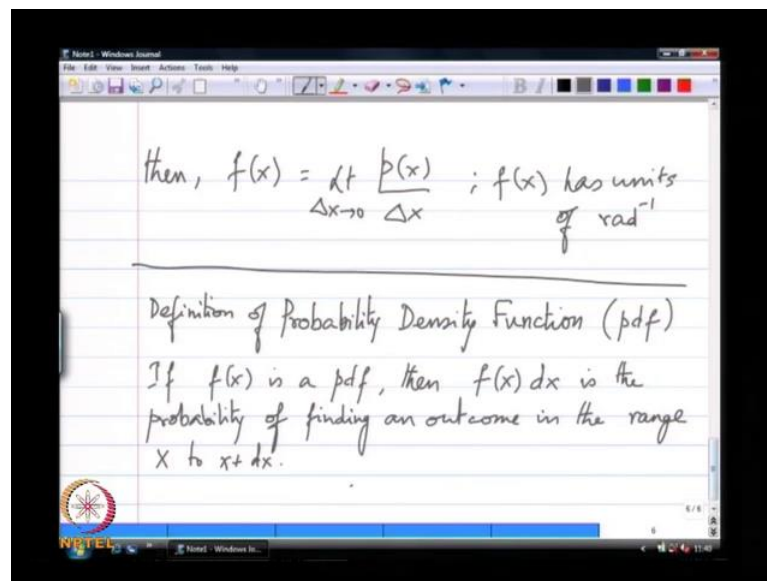 Note1 - Windows Journal
File Edit View Insert Actions Tools Help
B I
then, f(x) = Lt p(x) ; f(x) has units
Δx→0 Δx of rad⁻¹
Definition of Probability Density Function (pdf)
If f(x) is a pdf, then f(x) dx is the
probability of finding an outcome in the range
x to x+dx.
6/6
6
NPTEL
Note1 - Windows Jo...
11:40